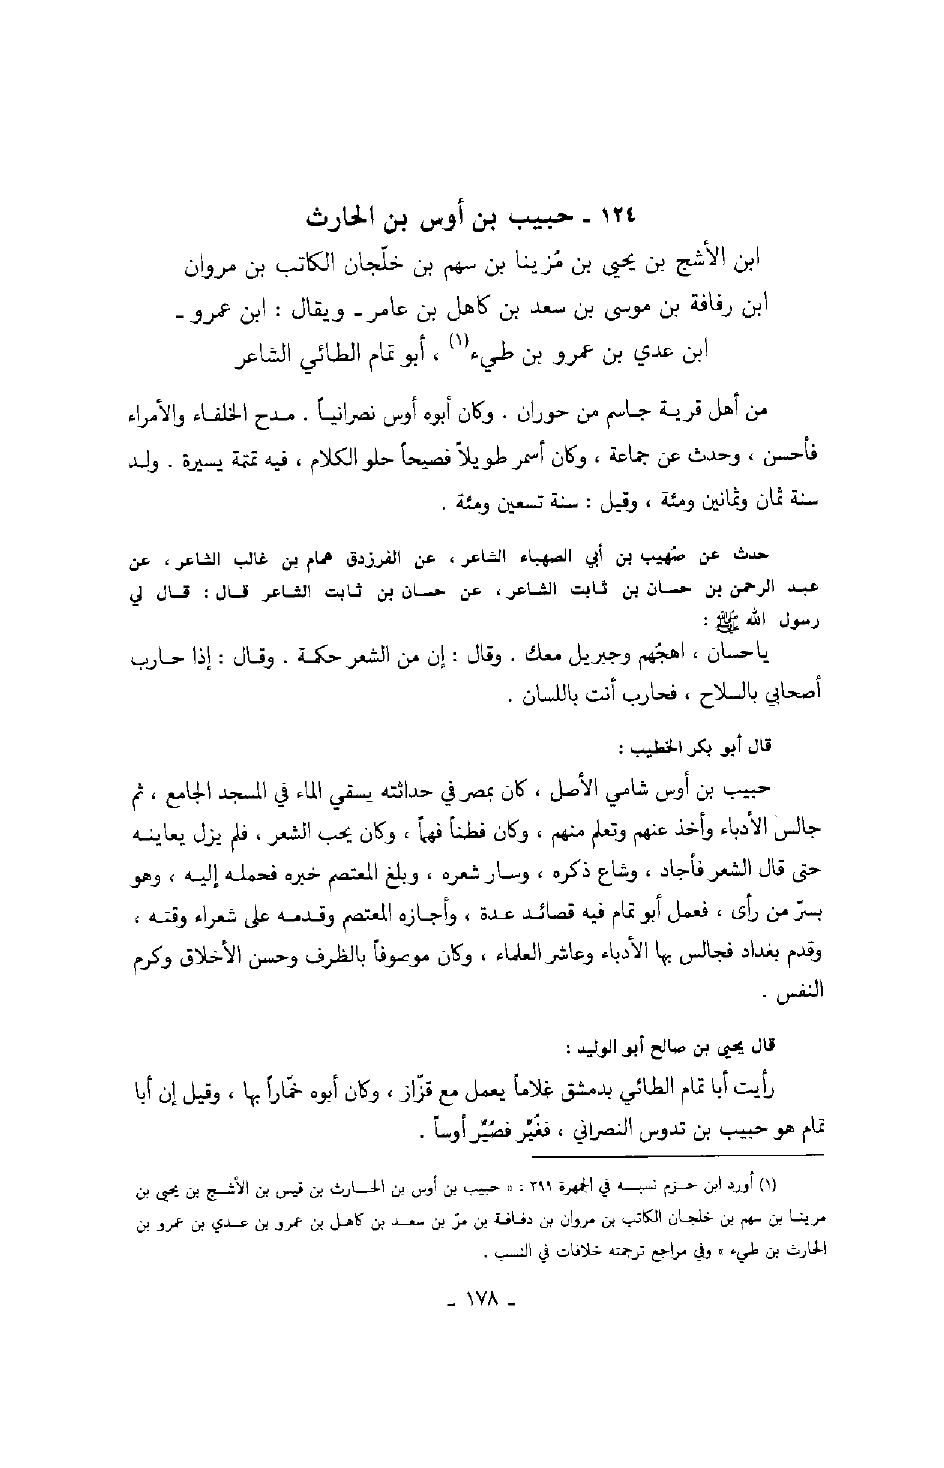 ١٢٤ - حبيب بن أوس بن الحارث
ابن الأشج بن يحيى بن مُزينا بن سهم بن خلّجان الكاتب بن مروان
ابن رفافة بن موسى بن سعد بن كاهل بن عامر - ويقال : ابن عمرو -
ابن عدي بن عمرو بن طيء(١) ، أبو تمام الطائي الشاعر
من أهل قرية جاسم من حوران . وكان أبوه أوس نصرانياً . مدح الخلفاء والأمراء
فأحسن ، وحدث عن جماعة ، وكان أسمر طويلاً فصيحاً حلو الكلام ، فيه تمتمة يسيرة . ولد
سنة ثمان وثمانين ومئة ، وقيل : سنة تسعين ومئة .
حدث عن صُهيب بن أبي الصهباء الشاعر ، عن الفرزدق همام بن غالب الشاعر ، عن
عبد الرحمن بن حسان بن ثابت الشاعر ، عن حسان بن ثابت الشاعر قال : قال لي
رسول الله ﷺ :
ياحسان ، اهجُهم وجبريل معك . وقال : إن من الشعر حكمة . وقال : إذا حارب
أصحابي بالسلاح ، فحارب أنت باللسان .
قال أبو بكر الخطيب :
حبيب بن أوس شامي الأصل ، كان بمصر في حداثته يسقي الماء في المسجد الجامع ، ثم
جالس الأدباء وأخذ عنهم وتعلم منهم ، وكان فطناً فهماً ، وكان يحب الشعر ، فلم يزل يعاينه
حتى قال الشعر فأجاد ، وشاع ذكره ، وسار شعره ، وبلغ المعتصم خبره فحمله إليه ، وهو
بسرّ من رأى ، فعمل أبو تمام فيه قصائد عدة ، وأجازه المعتصم وقدمه على شعراء وقته ،
وقدم بغداد فجالس بها الأدباء وعاشر العلماء ، وكان موصوفاً بالظرف وحسن الأخلاق وكرم
النفس .
قال يحيى بن صالح أبو الوليد :
رأيت أبا تمام الطائي بدمشق غلاماً يعمل مع قزّاز ، وكان أبوه خمّاراً بها ، وقيل إن أبا
تمام هو حبيب بن تدوس النصراني ، فغُيّر فصُيّر أوساً .
(١) أورد ابن حزم نسبه في الجمهرة ٣٩٩ : « حبيب بن أوس بن الحارث بن قيس بن الأشج بن يحيى بن
مرينا بن سهم بن خلجان الكاتب بن مروان بن دفافة بن مرّ بن سعد بن كاهل بن عمرو بن عدي بن عمرو بن
الحارث بن طيء » وفي مراجع ترجمته خلافات في النسب .
- ١٧٨ -